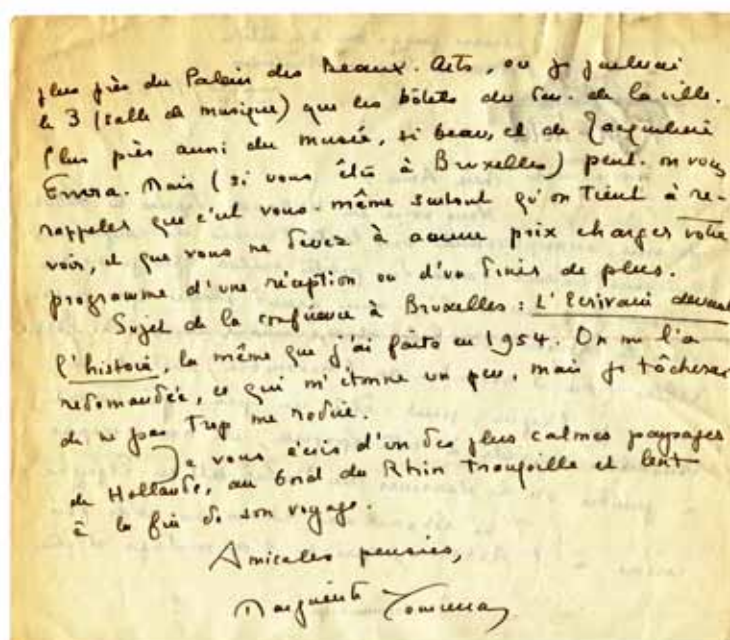 plus près du Palais des Beaux-Arts, où je parlerai
le 3 (salle de musique) que les hôtels du de la ville.
Plus près aussi du musée, si beau, et de Jacqueline
Errera. Mais (si vous êtes à Bruxelles) peut-on vous
rappeler que c'est vous-même surtout qu'on tient à re-
voir, et que vous ne devez à aucun prix charger votre
programme d'une réception ou d'un dîner de plus.
Sujet de la conférence à Bruxelles : L'Ecrivain devant
l'histoire, la même que j'ai faite en 1954. On me l'a
redemandée, ce qui m'étonne un peu, mais je tâcherai
de ne pas trop me redire.
Je vous écris d'un des plus calmes paysages
de Hollande, au bord du Rhin tranquille et lent
à la fin de son voyage.
Amicales pensées,
Marguerite Yourcenar